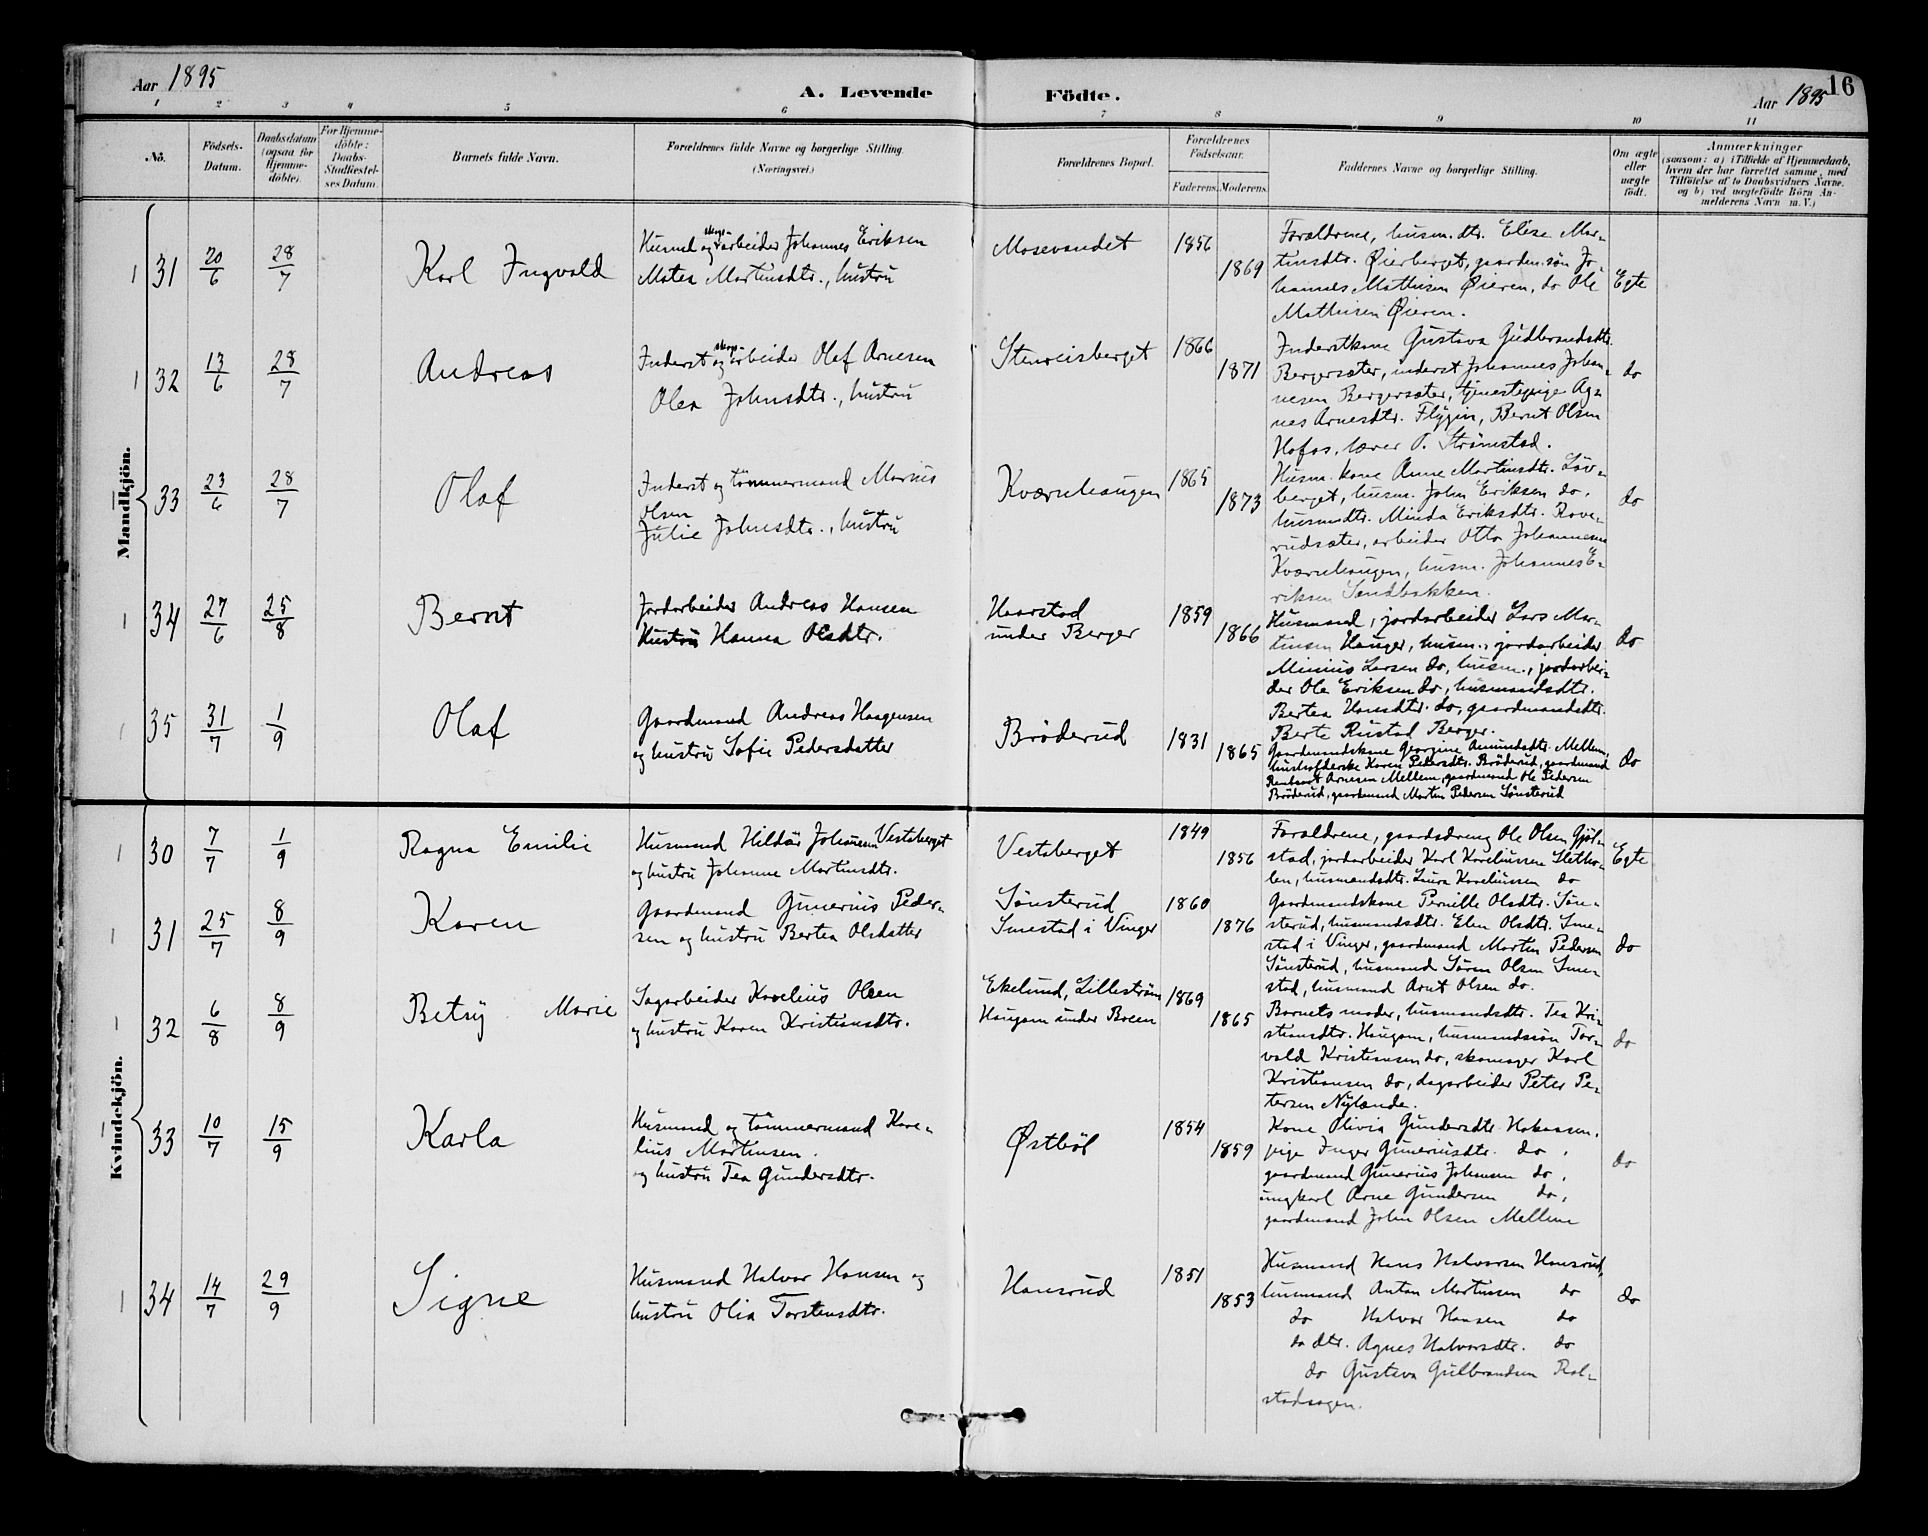 Aar 1895
A. Levende
Födte.
Aar 1895
16
1 2 3 4 5 6 7 8 9 10 11
No.
Födsels-
Datum.
Daabsdatum
(ogsaa for
Hjemme-
döbte).
For Hjemme-
döbte:
Daabs-
Stadfæstel-
ses Datum.
Barnets fulde Navn.
Forældrenes fulde Navne og borgerlige Stilling.
(Næringsvei.)
Forældrenes Bopæl.
Forældrenes
Födselsaar.
Faderens. Moderens.
Faddernes Navne og borgerlige Stilling.
Om ægte
eller
uægte
födt.
Anmærkninger
(saasom: a) i Tilfælde af Hjemmedaab,
hvem der har forrettet samme, med
Tilföielse af to Daabsvidners Navne,
og b) ved uægtefödte Börn An-
melderens Navn m. V.)
Mandkjön.
1 31 20/6 28/7
Karl Ingvald
Husmd og skogsarbeider Johannes Eriksen
Matea Martinsdtr., hustru
Mosevandet
1856
1869
Forældrene, husm.dtr. Elise Mar-
tinsdtr. Øierberget, gaardm.søn Jo-
hannes Mathisen Øieren, do Ole
Mathisen Øieren.
Egte
1 32 13/6 28/7
Andreas
Inderst og skogsarbeider Olaf Arnesen
Olea Johnsdtr., hustru
Stenreisberget
1866
1871
Inderstkone Gustava Gudbrandsdtr.
Bergersæter, inderst Johannes Johan-
nesen Bergersæter, tjenestepige Ag-
nes Arnesdtr. Flygin, Bernt Olsen
Hofos, lærer O. Strömstad.
do
33 23/6 28/7
Olaf
Inderst og tömmermand Marius
Olsen
Julie Johnsdtr., hustru
Kværnhaugen
1865
1873
Husm.kone Anne Martinsdtr. Löv-
berget, husm. John Eriksen do,
husmdtr. Minda Eriksdtr. Rove-
rudsæter, arbeider Otto Johannesen
Kværnhaugen, husm. Johannes E-
riksen Sandbakken.
do
1 34 27/6 25/8
Bernt
Jordarbeider Andreas Hansen
Hustru Hanna Olsdtr.
Haarstad
under Berger
1859
1866
Husmand, jordarbeider Lars Mar-
tinsen Hauger, husm., jordarbeider
Minius Larsen do, husm., jordarbei-
der Ole Eriksen do, husmandsdtr.
Bertea Hansdtr. do, gaardmandsdtr.
Berte Rustad Berger.
do
1 35 31/7 1/9
Olaf
Gaardmand Andreas Haagensen
og hustru Sofie Pedersdatter
Bröderud
1831
1865
Gaardmandskone Georgine Amundsdtr. Mellem,
husholderske Karen Pedersdtr. Bröderud, gaardmand
Arnesen Mellem, gaardmand Ole Pedersen
Bröderud, gaardmand Martin Pedersen Sönsterud
do
Kvindekjön.
1 30 7/7 1/9
Ragna Emilie
Husmand Hildör Johansen Vestaberget
og hustru Johanne Martinsdtr.
Vestaberget
1849
1856
Forældrene, gaardsdreng Ole Olsen Gjöl-
stad, jordarbeider Karl Koreliussen Sletho-
len, husmandsdtr. Laura Koreliussen do
Egte
1 31 25/7 8/9
Karen
Gaardmand Gunerius Peder-
sen og hustru Bertea Olsdatter
Sönsterud
Smestad i Vinger
1860
1876
Gaardmandskone Pernille Olsdtr. Sön-
sterud, husmandsdtr. Elen Olsdtr. Sme-
stad i Vinger, gaardmand Martin Pedersen
Sönsterud, husmand Sören Olsen Sme-
stad, husmand Arnt Olsen do.
do
1 32 6/8 8/9
Betsy Marie
Sagarbeider Korelius Olsen
og hustru Karen Kristiansdtr.
Ekelund, Lilleström
Haugom under Breen
1869
1865
Barnets moder, husmandsdtr. Tea Kri-
stiansdtr. Haugom, husmandssön Tor-
vald Kristiansen do, skomager Karl
Kristiansen do, dagarbeider Peter Pe-
tersen Nylænde.
do
33 10/7 15/9
Karla
Husmand og tömmermand Kore-
lius Martinsen.
og hustru Tea Gundersdtr.
Østböl
1854
1859
Kone Olivia Gundersdtr. Hokaasen,
pige Inger Guneriusdtr. do,
gaardmand Gunerius Johansen do,
ungkarl Arne Gundersen do,
gaardmand John Olsen Mellem
do
1 34 14/7 29/9
Signe
Husmand Halvor Hansen og
hustru Olia Torstensdtr.
Hansrud
1851
1853
Husmand Hans Halvorsen Hansrud,
husmand Anton Martinsen do
do Halvor Hansen do
do dtr. Agnes Halvorsdtr. do
do Gustava Gulbrandsen Rol-
stadsagen.
do